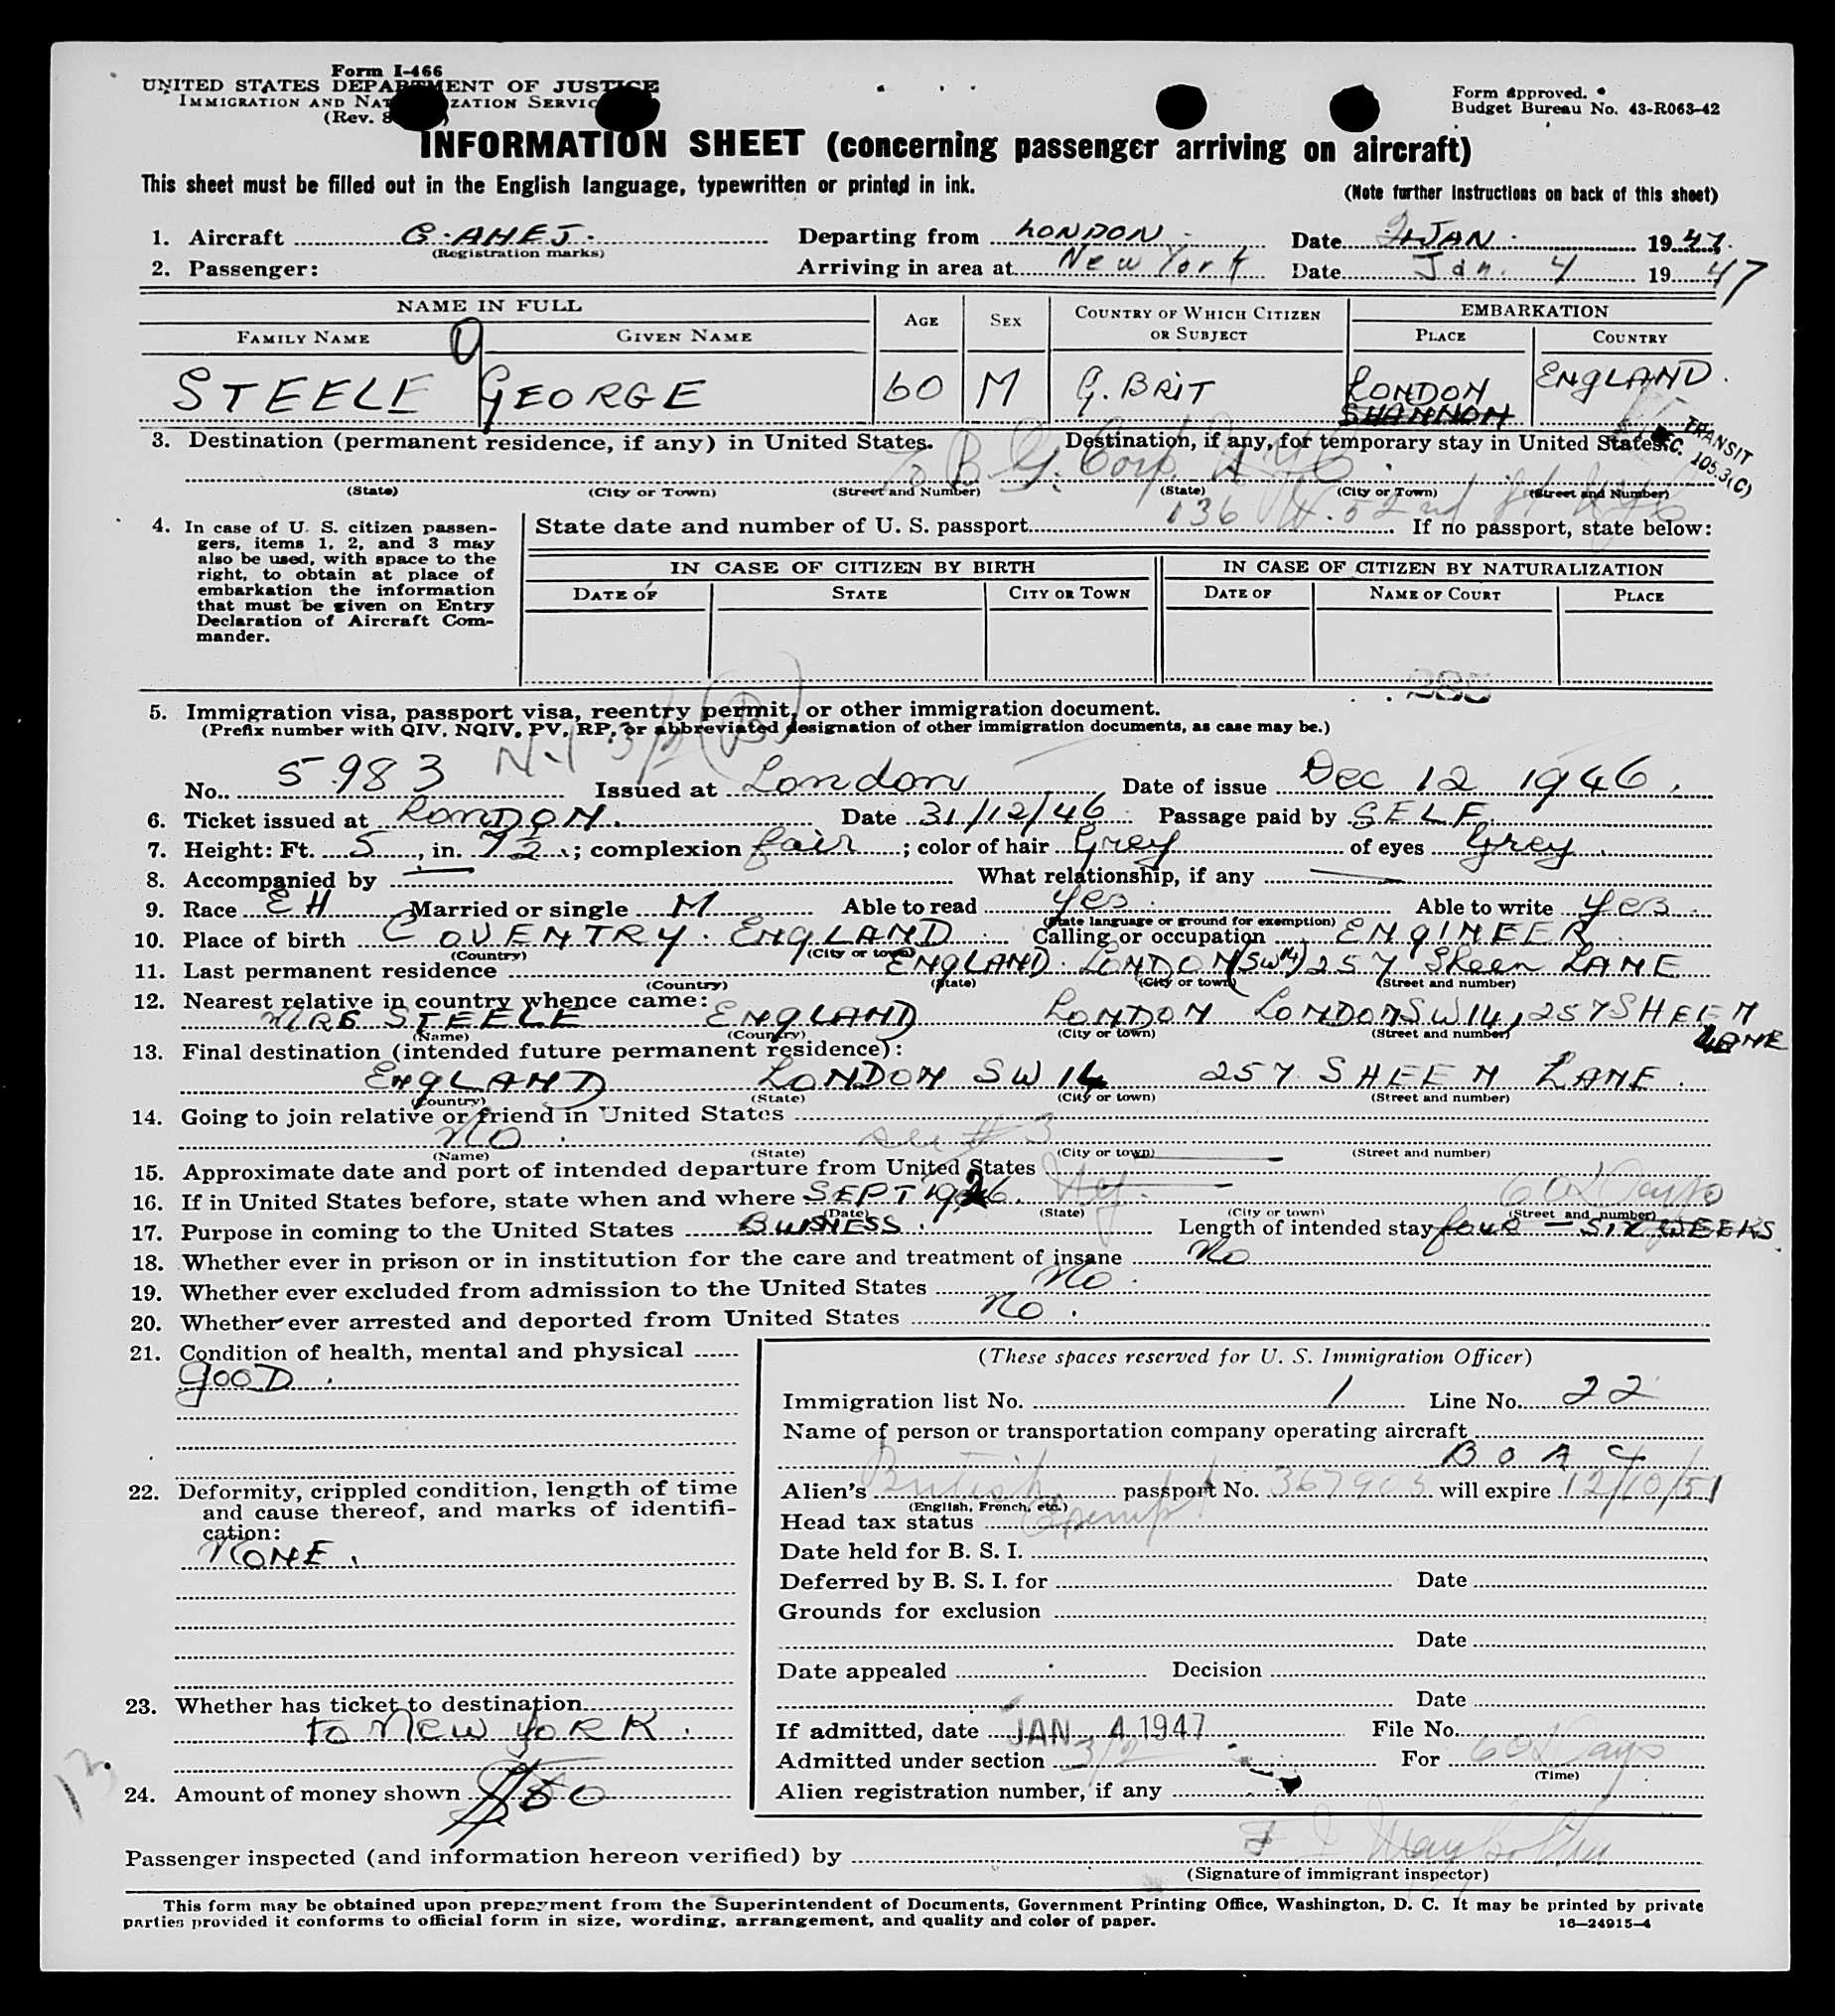 Form I-466
UNITED STATES DEPARTMENT OF JUSTICE
IMMIGRATION AND NATURALIZATION SERVICE
(Rev. 8
Form approved.
Budget Bureau No. 43-R063-42
INFORMATION SHEET (concerning passenger arriving on aircraft)
This sheet must be filled out in the English language, typewritten or printed in ink.
(Note further instructions on back of this sheet)
1. Aircraft G-AHEJ. Departing from LONDON Date 2 JAN 1947.
(Registration marks)
2. Passenger: Arriving in area at New York Date Jan. 4 1947
NAME IN FULL AGE SEX COUNTRY OF WHICH CITIZEN OR SUBJECT EMBARKATION
FAMILY NAME GIVEN NAME PLACE COUNTRY
STEELE GEORGE 60 M G. BRIT LONDON ENGLAND.
SHANNON
3. Destination (permanent residence, if any) in United States. Destination, if any, for temporary stay in United States.
SEC. 105.3(C) TRANSIT
% B.G. Corp. NYC
(State) (City or Town) (Street and Number) (State) (City or Town) (Street and Number)
136 W. 52nd St NYC
4. In case of U. S. citizen passengers, items 1, 2, and 3 may
also be used, with space to the
right, to obtain at place of
embarkation the information
that must be given on Entry
Declaration of Aircraft Commander.
State date and number of U. S. passport If no passport, state below:
IN CASE OF CITIZEN BY BIRTH IN CASE OF CITIZEN BY NATURALIZATION
DATE OF STATE CITY OR TOWN DATE OF NAME OF COURT PLACE
5. Immigration visa, passport visa, reentry permit, or other immigration document.
(Prefix number with QIV, NQIV, PV, RP, or abbreviated designation of other immigration documents, as case may be.)
N-I 3/2 (B)
No. 5983 Issued at London Date of issue Dec 12 1946.
6. Ticket issued at LONDON. Date 31/12/46 Passage paid by SELF.
7. Height: Ft. 5, in. 7½; complexion fair; color of hair Grey of eyes Grey.
8. Accompanied by — What relationship, if any —
9. Race EH Married or single M Able to read yes. Able to write yes.
(State language or ground for exemption)
10. Place of birth COVENTRY. ENGLAND Calling or occupation ENGINEER.
(Country) (City or town)
11. Last permanent residence ENGLAND. LONDON (SW14) 257 Sheen LANE
(Country) (State) (City or town) (Street and number)
12. Nearest relative in country whence came:
MRS STEELE ENGLAND LONDON LONDON SW14, 257 SHEEN LANE
(Name) (Country) (City or town) (Street and number)
13. Final destination (intended future permanent residence):
ENGLAND LONDON SW 14 257 SHEEN LANE.
(Country) (State) (City or town) (Street and number)
14. Going to join relative or friend in United States
NO. see # 3
(Name) (State) (City or town) (Street and number)
15. Approximate date and port of intended departure from United States
16. If in United States before, state when and where SEPT 1926. 60 Days
(Date) (State) (City or town) (Street and number)
17. Purpose in coming to the United States BUSINESS. Length of intended stay four - SIX WEEKS.
18. Whether ever in prison or in institution for the care and treatment of insane No
19. Whether ever excluded from admission to the United States No.
20. Whether ever arrested and deported from United States No.
21. Condition of health, mental and physical
GOOD.
22. Deformity, crippled condition, length of time
and cause thereof, and marks of identification:
NONE.
23. Whether has ticket to destination
to NEW YORK.
24. Amount of money shown $80
13
(These spaces reserved for U. S. Immigration Officer)
Immigration list No. 1 Line No. 22
Name of person or transportation company operating aircraft
BOAC
Alien's British passport No. 367903 will expire 12/10/51
(English, French, etc.)
Head tax status Exempt
Date held for B. S. I.
Deferred by B. S. I. for Date
Grounds for exclusion
Date
Date appealed Decision
Date
If admitted, date JAN 4 1947 File No.
Admitted under section 3/2 For 60 Days
(Time)
Alien registration number, if any
Passenger inspected (and information hereon verified) by
(Signature of immigrant inspector)
This form may be obtained upon prepayment from the Superintendent of Documents, Government Printing Office, Washington, D. C. It may be printed by private
parties provided it conforms to official form in size, wording, arrangement, and quality and color of paper.
16—24915-4